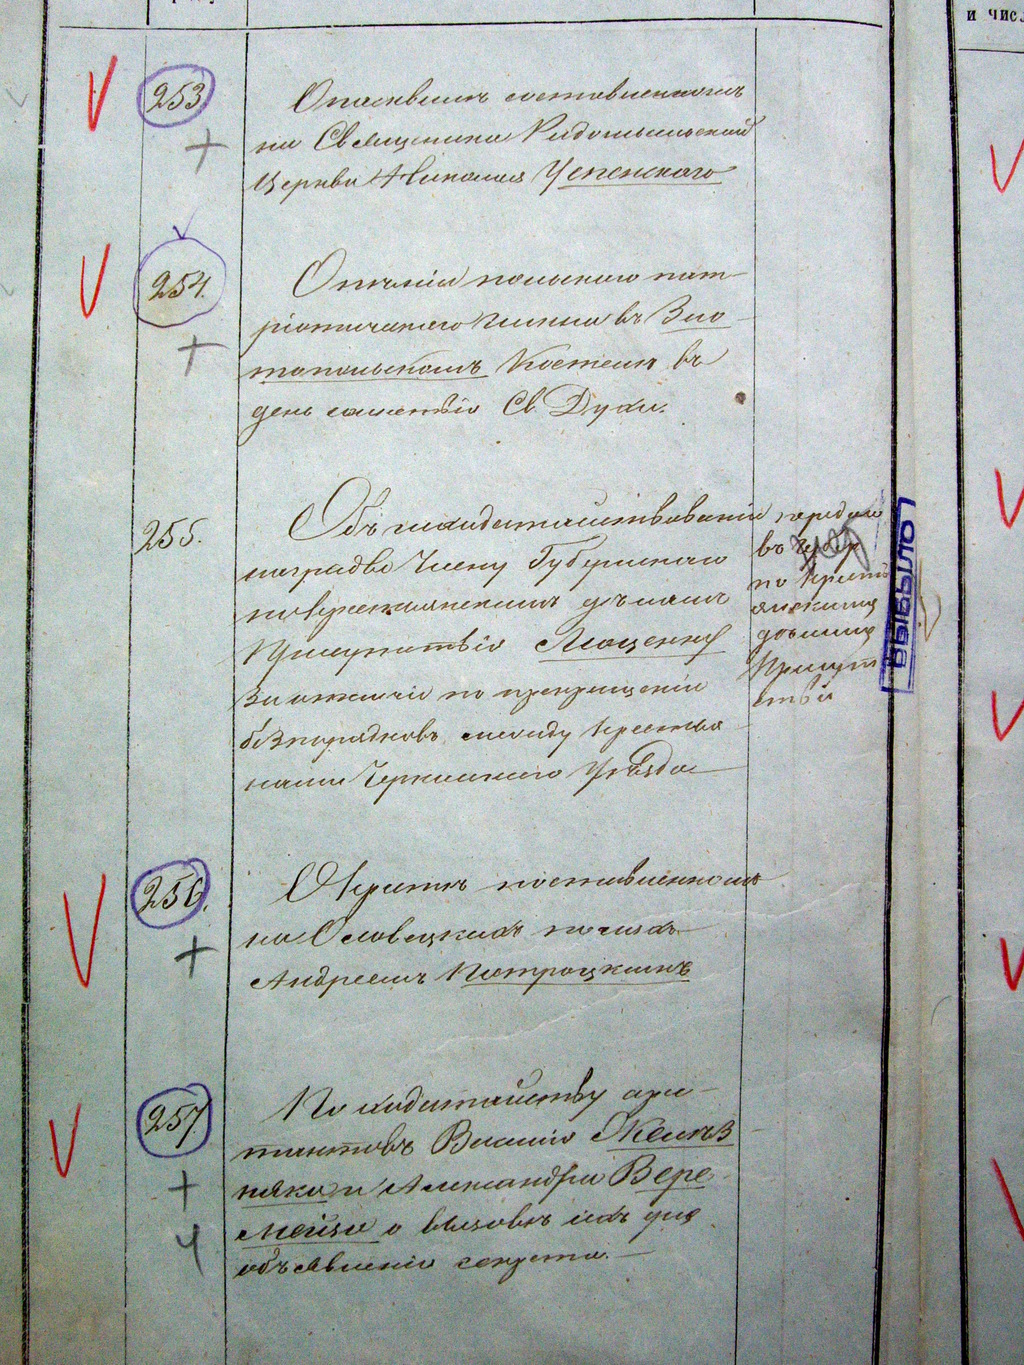 и числ
253.
О пасквиле составленномъ
на Священника Радомысльской
Церкви Николая Успенскаго
254.
О пѣніи польскаго пат-
ріотическаго гимна въ Зла-
топольскомъ Костелѣ въ
день сошествія Св. Духа.
255.
Объ исходатайствованіи
награды Члену Губернскаго
по крестьянскимъ дѣламъ
Присутствія Моценку
за отличіе по прекращенію
безпорядковъ между крестья-
нами Черкасскаго Уѣзда
передано
въ Губер
по крестъ
янскимъ
дѣламъ
Присут
ствія
ВЫБЫЛО
256.
О крестѣ поставленномъ
на Словецкихъ поляхъ
Андреемъ Петроцкимъ
257.
По ходатайству арес-
тантовъ Василія
и Александра Вере-
мейца о вызовѣ ихъ для
объявленія секрета.